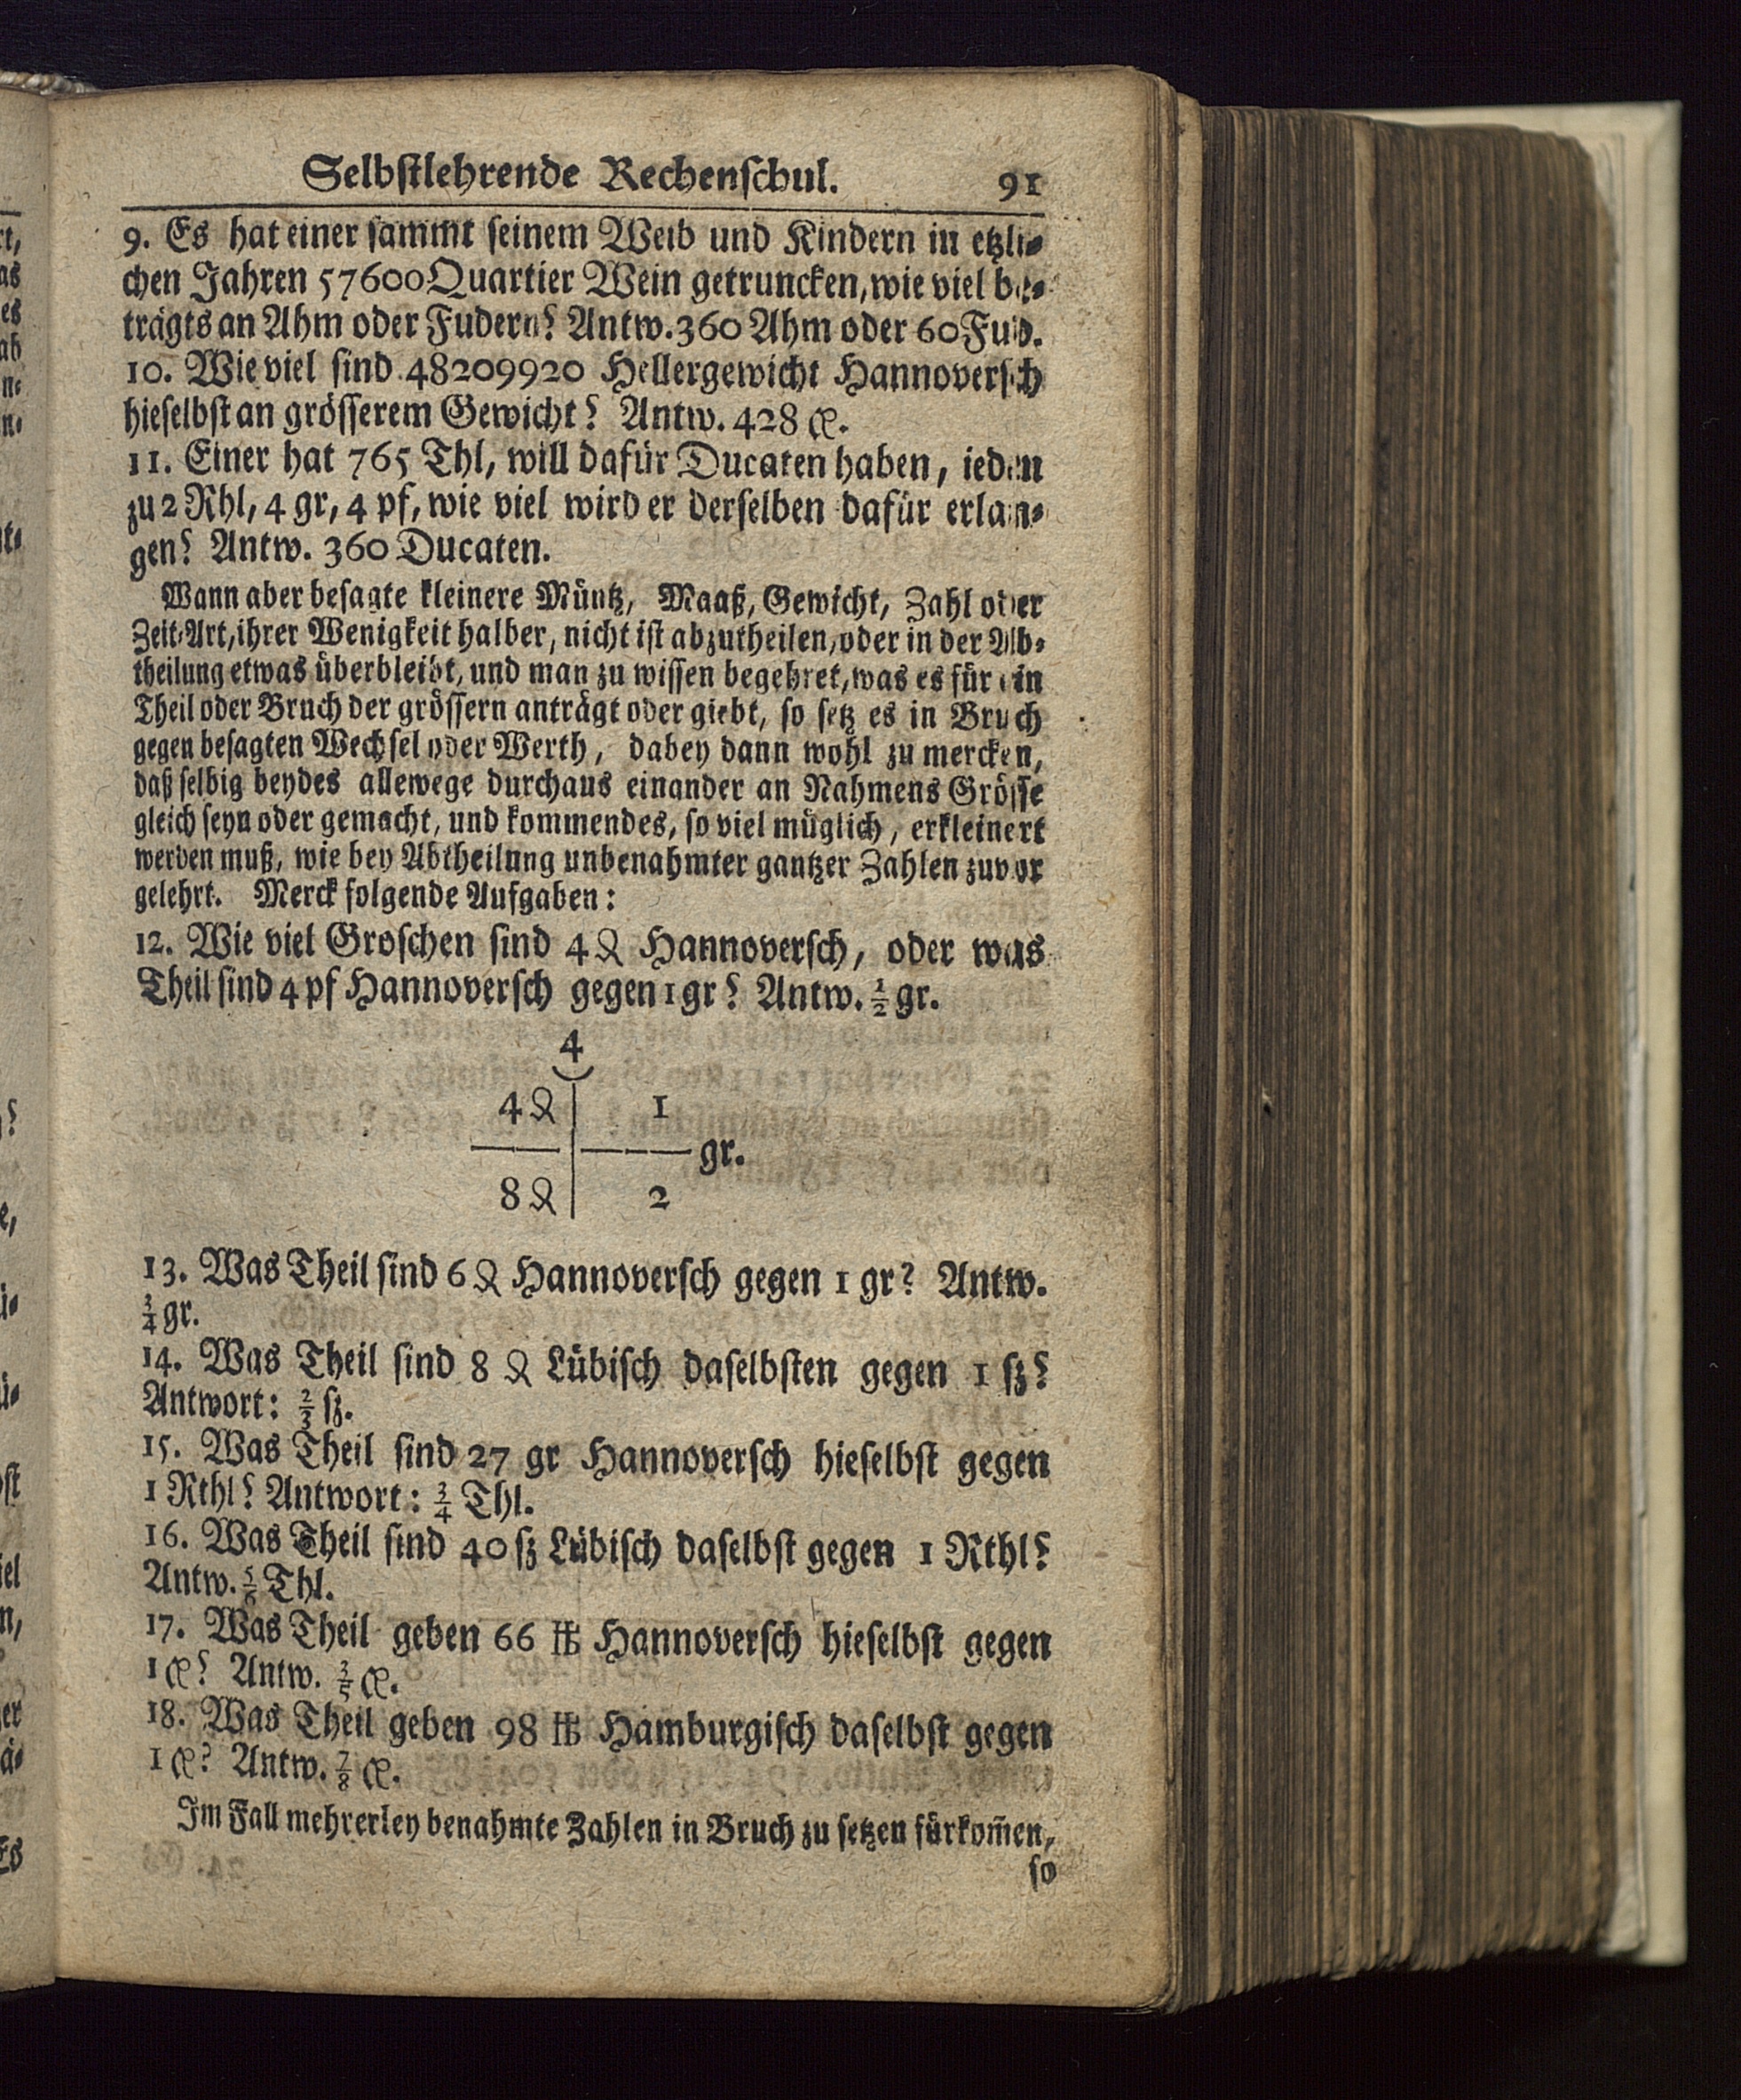 Selbstlehrende Rechenschul. 91
9. Es hat einer sammt seinem Weib und Kindern in etzli-
chen Jahren 57600 Quartier Wein getruncken, wie viel be-
trägts an Ahm oder Fudern? Antw. 360 Ahm oder 60 Fud.
10. Wie viel sind 48209920 Hellergewicht Hannoversch
hieselbst an grösserem Gewicht? Antw. 428 ℞.
11. Einer hat 765 Thl, will dafür Ducaten haben, ieden
zu 2 Rhl, 4 gr, 4 pf, wie viel wird er derselben dafür erlan-
gen? Antw. 360 Ducaten.
Wann aber besagte kleinere Müntz, Maaß, Gewicht, Zahl oder
Zeit-Art, ihrer Wenigkeit halber, nicht ist abzutheilen, oder in der Ab-
theilung etwas überbleibt, und man zu wissen begehret, was es für ein
Theil oder Bruch der grössern anträgt oder giebt, so setz es in Bruch
gegen besagten Wechsel oder Werth, dabey dann wohl zu mercken,
daß selbig beydes allewege durchaus einander an Nahmens Grösse
gleich seyn oder gemacht, und kommendes, so viel müglich, erkleinert
werden muß, wie bey Abtheilung unbenahmter gantzer Zahlen zuvor
gelehrt. Merck folgende Aufgaben:
12. Wie viel Groschen sind 4 ₰ Hannoversch, oder was
Theil sind 4 pf Hannoversch gegen 1 gr? Antw. 1/2 gr.
4
4 ₰ | 1
gr.
8 ₰ | 2
13. Was Theil sind 6 ₰ Hannoversch gegen 1 gr? Antw.
3/4 gr.
14. Was Theil sind 8 ₰ Lübisch daselbsten gegen 1 ſz?
Antwort: 2/3 ſz.
15. Was Theil sind 27 gr Hannoversch hieselbst gegen
1 Rthl? Antwort: 3/4 Thl.
16. Was Theil sind 40 ſz Lübisch daselbst gegen 1 Rthl?
Antw. 5/6 Thl.
17. Was Theil geben 66 ℔ Hannoversch hieselbst gegen
1 ℞? Antw. 3/5 ℞.
18. Was Theil geben 98 ℔ Hamburgisch daselbst gegen
1 ℞? Antw. 7/8 ℞.
Im Fall mehrerley benahmte Zahlen in Bruch zu setzen fürkom̄en,
so